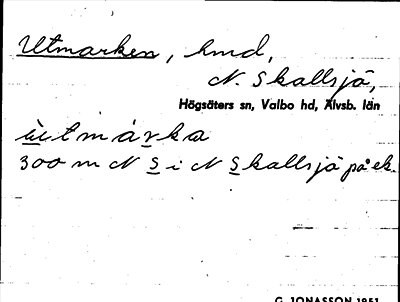 Utmarken, hmd,
N. Skallsjö,
Högsäters sn, Valbo hd, Älvsb. län
ùtmárka
300 m N S i N Skallsjö på ek.
G. JONASSON 1951